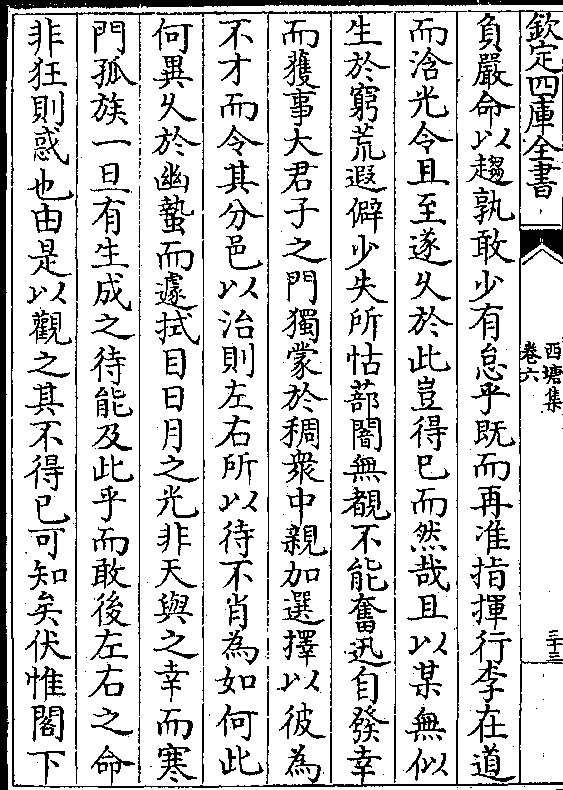 欽定四庫全書
西塘集
卷六
三十三
負嚴命以趨孰敢少有怠乎既而再准指揮行李在道
而淦光令且至遂乆於此豈得已而然哉且以某無似
生於窮荒遐僻少失所怙蔀闇無覩不能奮迅自發幸
而獲事大君子之門獨蒙於稠衆中親加選擇以彼為
不才而令其分邑以治則左右所以待不肖為如何此
何異乆於幽蟄而遽拭目日月之光非天與之幸而寒
門孤族一旦有生成之待能及此乎而敢後左右之命
非狂則惑也由是以觀之其不得已可知矣伏惟閣下